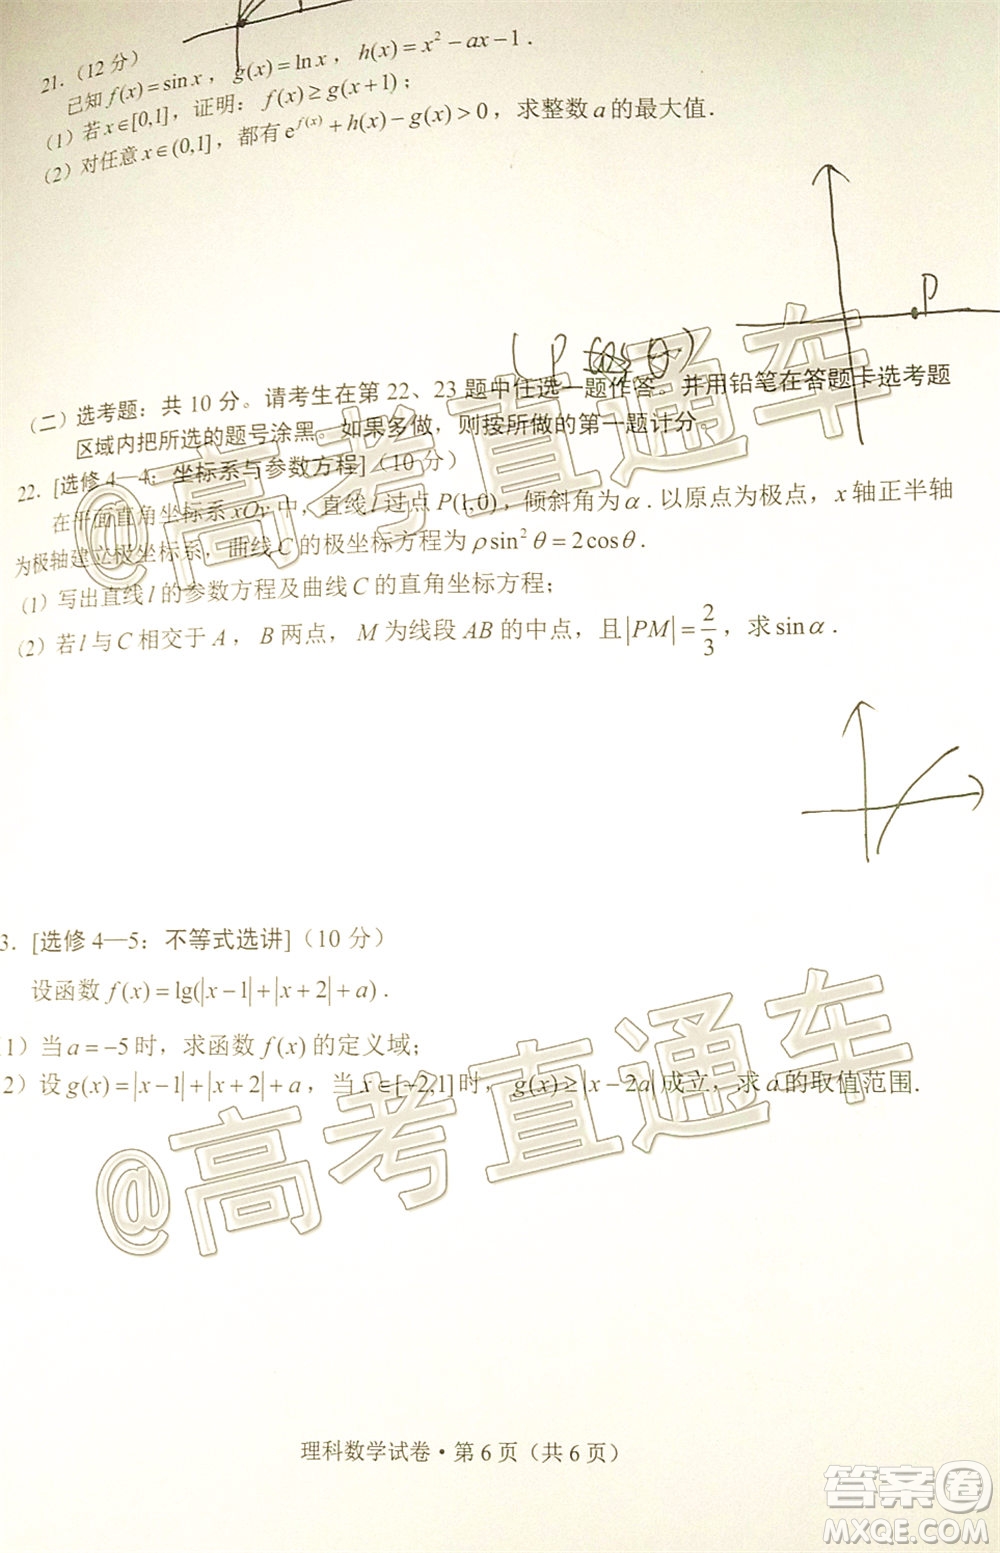 21.（12 分）
已知 f(x)=sin x，g(x)=ln x，h(x)=x²-ax-1.
(1) 若 x∈[0,1]，证明：f(x)≥g(x+1)；
(2) 对任意 x∈(0,1]，都有 e^{f(x)}+h(x)-g(x)>0，求整数 a 的最大值.
P
(ρ cos θ)
（二）选考题：共 10 分。请考生在第 22、23 题中任选一题作答。并用铅笔在答题卡选考题
区域内把所选的题号涂黑。如果多做，则按所做的第一题计分。
22. [选修 4—4：坐标系与参数方程]（10 分）
在平面直角坐标系 xOy 中，直线 l 过点 P(1,0)，倾斜角为 α. 以原点为极点，x 轴正半轴
为极轴建立极坐标系，曲线 C 的极坐标方程为 ρsin²θ=2cosθ.
(1) 写出直线 l 的参数方程及曲线 C 的直角坐标方程；
(2) 若 l 与 C 相交于 A，B 两点，M 为线段 AB 的中点，且|PM|=2/3，求 sinα.
@高考直通车
3. [选修 4—5：不等式选讲]（10 分）
设函数 f(x)=lg(|x-1|+|x+2|+a).
1）当 a=-5 时，求函数 f(x) 的定义域；
2）设 g(x)=|x-1|+|x+2|+a，当 x∈[-2,1] 时，g(x)≥|x-2a| 成立，求 a 的取值范围.
@高考直通车
理科数学试卷·第 6 页（共 6 页）
答案卷
MXQE.COM